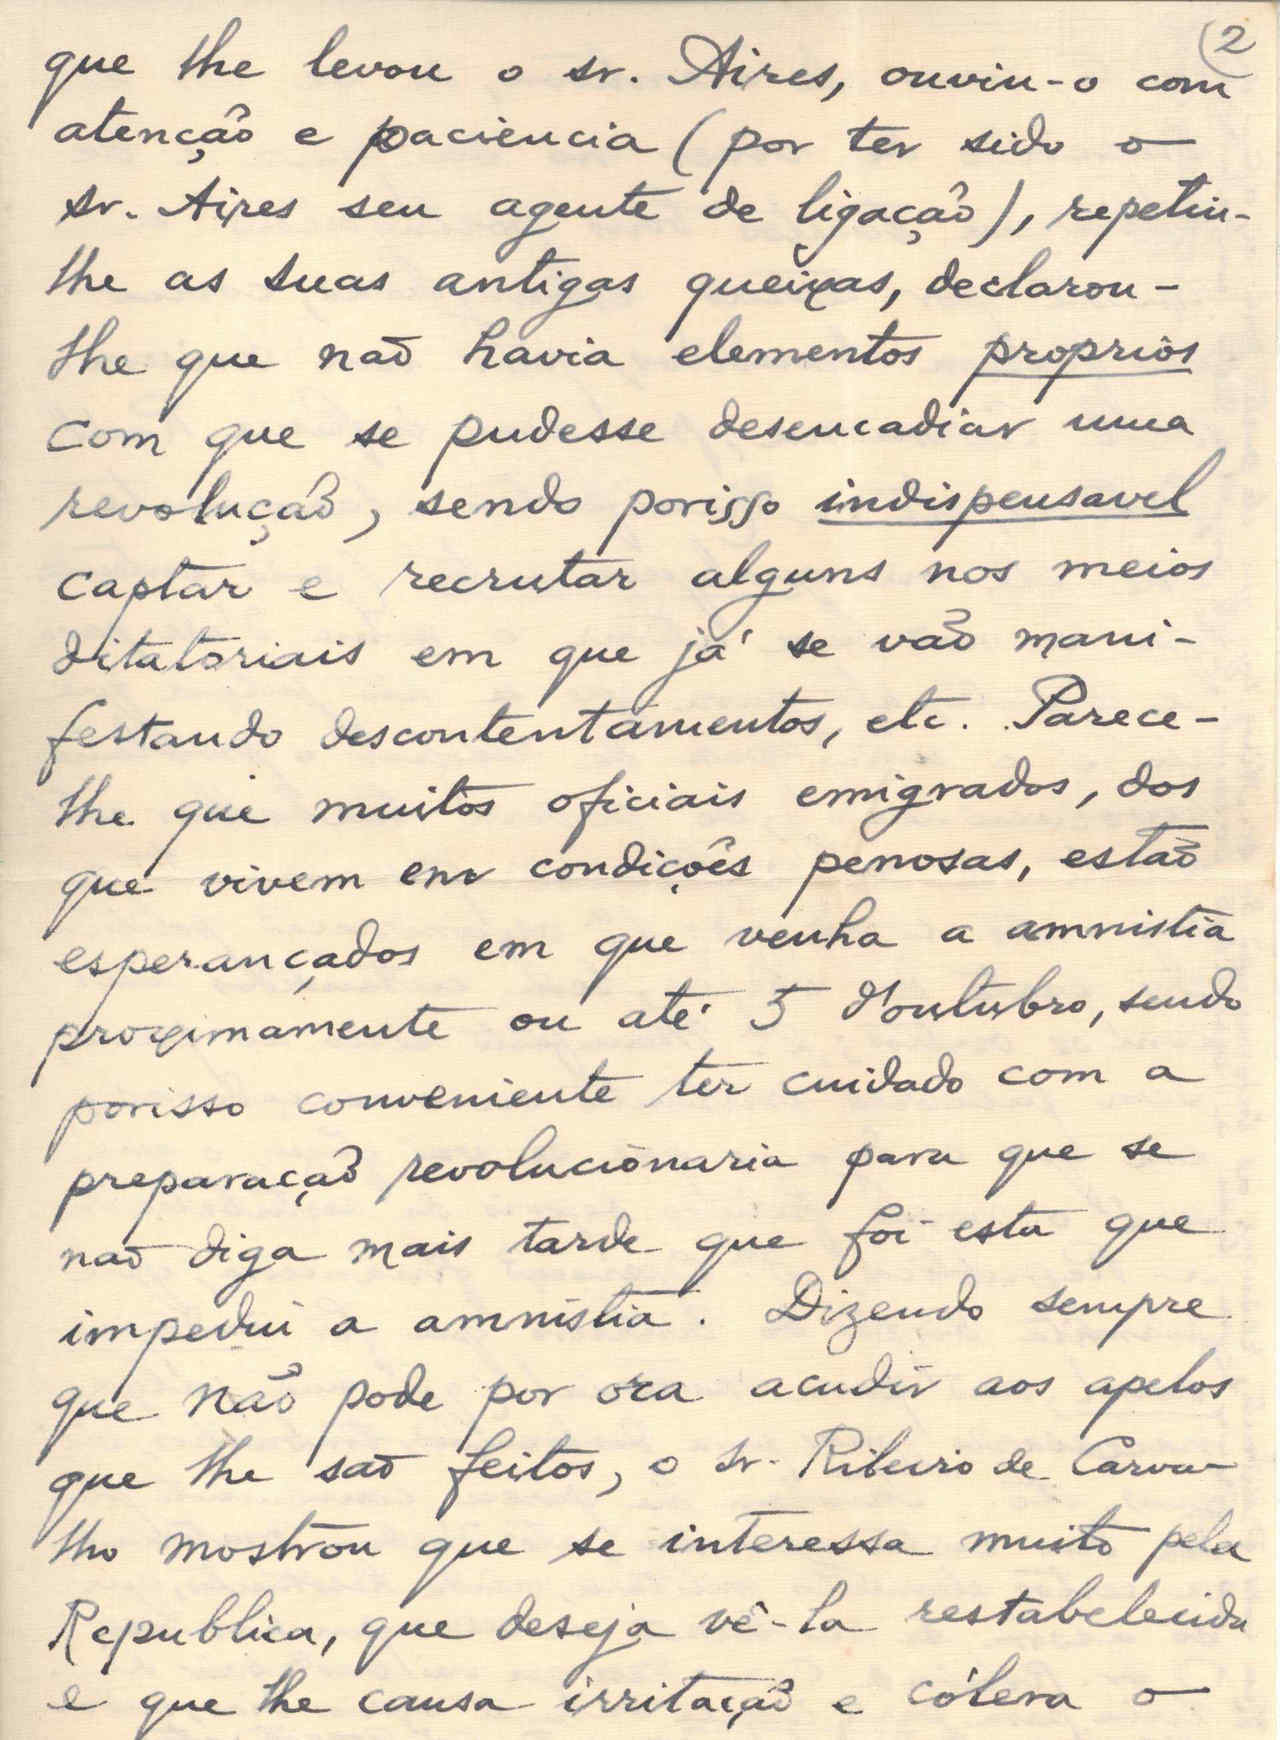 (2
que lhe levou o sr. Aires, ouviu-o com
atenção e paciencia (por ter sido o
sr. Aires seu agente de ligação), repetiu-
lhe as suas antigas queixas, declarou-
lhe que não havia elementos proprios
com que se pudesse desencadiar uma
revolução, sendo porisso indispensavel
captar e recrutar alguns nos meios
ditatoriais em que já se vão mani-
festando descontentamentos, etc. Parece-
lhe que muitos oficiais emigrados, dos
que vivem em condições penosas, estão
esperançados em que venha a amnistia
proximamente ou até 5 d'outubro, sendo
porisso conveniente ter cuidado com a
preparação revolucionaria para que se
não diga mais tarde que foi esta que
impediu a amnistia. Dizendo sempre
que não pode por ora acudir aos apelos
que lhe são feitos, o sr. Ribeiro de Carva-
lho mostrou que se interessa muito pela
Republica, que deseja vê-la restabelecida
e que lhe causa irritação e cólera o